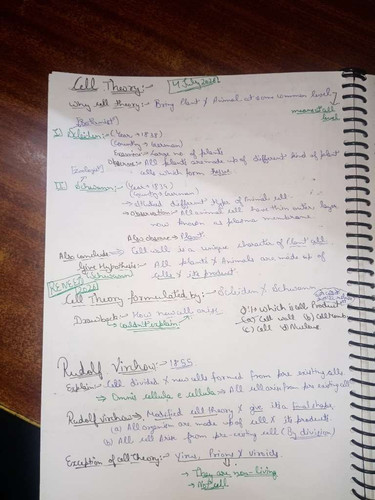 Cell Theory:-
4 July 2021
Why cell theory:- Bring Plant & Animal at some common level
(Botanist)
I) Schleiden:- (Year → 1838)
(Country → German)
Examine → Large no of plants
Observe → All plants are made up of different kind of plant
cells which form tissue
(Zoologist)
II) Schwann:- (Year → 1839)
(Country → German)
→ Studied different types of Animal cell
→ Observation:- All animal cell have thin outer layer
now known as plasma membrane
Also observe → Plant
Also conclude → Cell wall is a unique character of Plant cell
Give Hypothesis:- All plants & Animals are made up of
Schwann cells & its product.
Cell Theory formulated by:- Schleiden & Schwann
Drawback:- How new cell arise
→ couldn't explain
Q: Which is cell Product
(a) Cell wall (b) Cell memb
(c) Cell (d) Nucleus
Rudolf Virchow:- 1855
Explain:- Cell divides & new cells formed from pre existing cells
⇒ Omnis cellula e cellula → All cell arise from pre existing cell
Rudolf Virchow → Modified cell theory & give its a final shape
(a) All organism are made up of cell & its products
(b) All cell arise from pre-existing cell (By division)
Exception of cell theory:- Virus, Prions & viroids.
→ They are non-living
→ Not cell